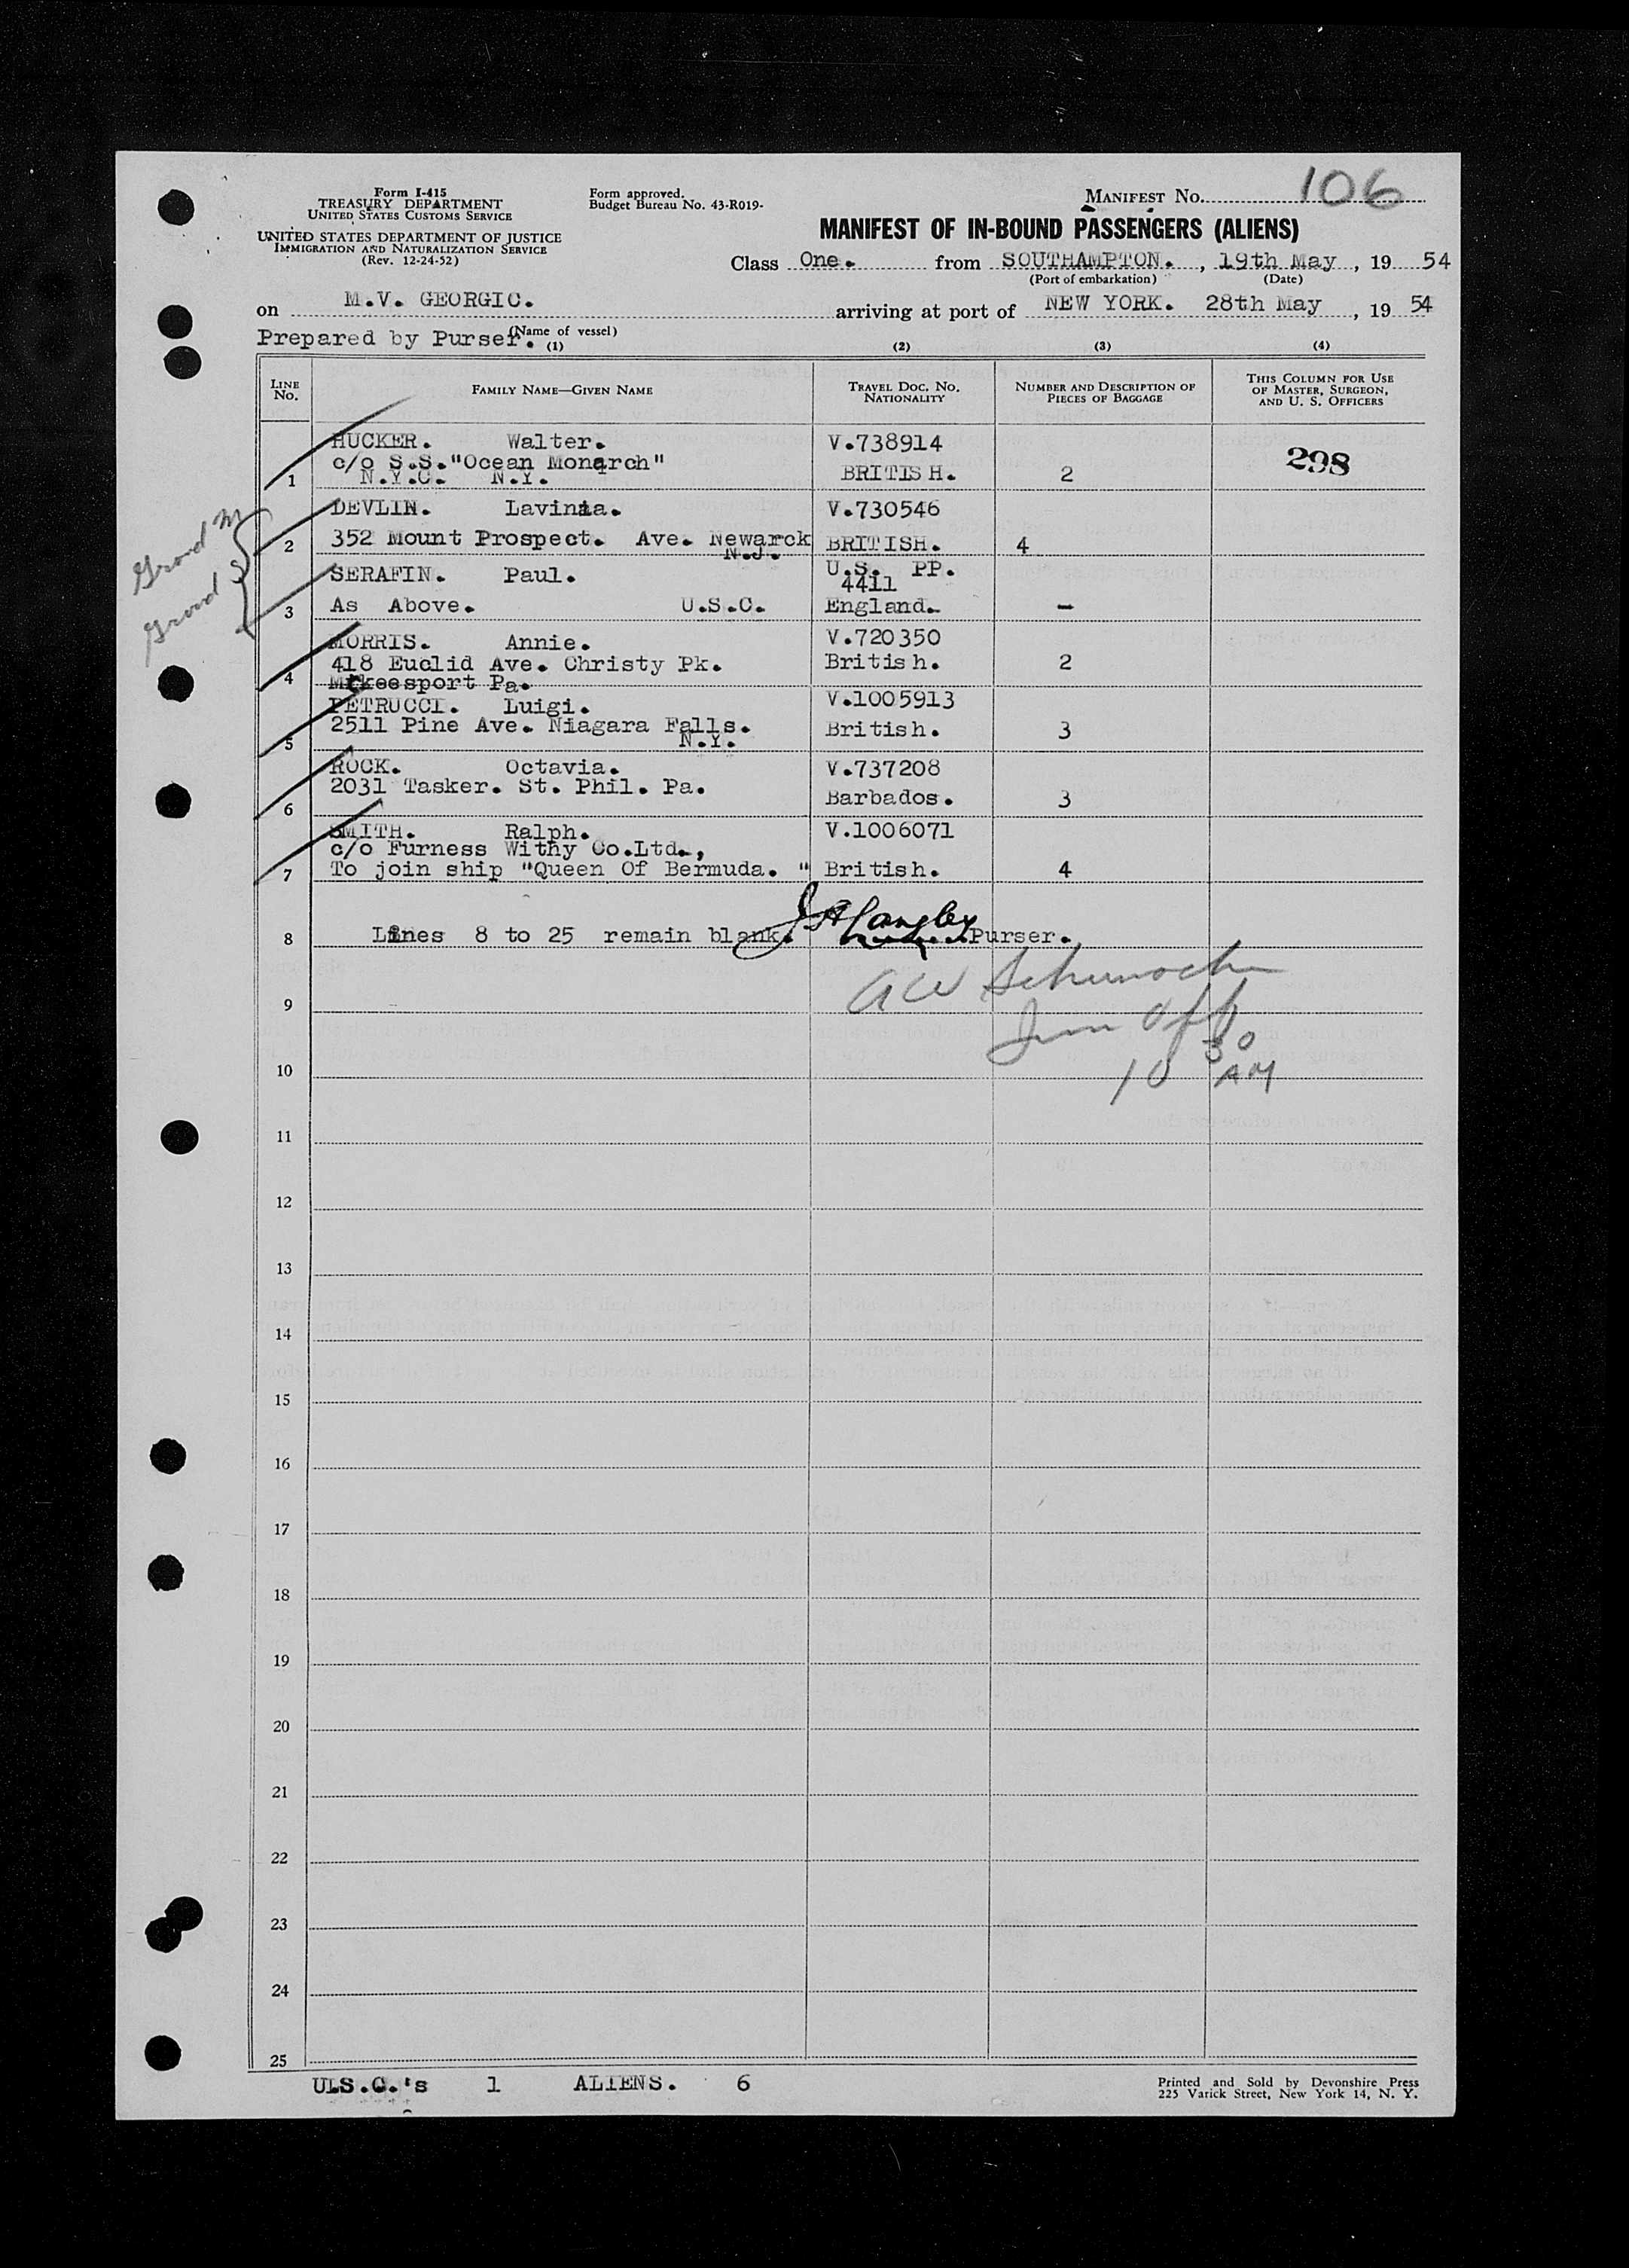 Form I-415
TREASURY DEPARTMENT
UNITED STATES CUSTOMS SERVICE
UNITED STATES DEPARTMENT OF JUSTICE
IMMIGRATION AND NATURALIZATION SERVICE
(Rev. 12-24-52)
Form approved.
Budget Bureau No. 43-R019-
MANIFEST No. 106
MANIFEST OF IN-BOUND PASSENGERS (ALIENS)
Class One. from SOUTHAMPTON., 19th May, 19 54
(Port of embarkation) (Date)
on M.V. GEORGIC. arriving at port of NEW YORK. 28th May, 19 54
Prepared by Purser. (Name of vessel)
(1) (2) (3) (4)
LINE No. FAMILY NAME—GIVEN NAME TRAVEL DOC. NO. NATIONALITY NUMBER AND DESCRIPTION OF PIECES OF BAGGAGE THIS COLUMN FOR USE OF MASTER, SURGEON, AND U. S. OFFICERS
HUCKER. Walter. V.738914
c/o S.S."Ocean Monarch" 298
1 N.Y.C. N.Y. BRITISH. 2
DEVLIN. Lavinia. V.730546
2 352 Mount Prospect. Ave. Newarck BRITISH. 4
N.J.
Grand M
Grand S
SERAFIN. Paul. U.S. PP.
4411
3 As Above. U.S.C. England. -
MORRIS. Annie. V.720350
418 Euclid Ave. Christy Pk. British. 2
4 Mckeesport Pa.
PETRUCCI. Luigi. V.1005913
2511 Pine Ave. Niagara Falls. British. 3
5 N.Y.
ROCK. Octavia. V.737208
2031 Tasker. St. Phil. Pa.
6 Barbados. 3
SMITH. Ralph. V.1006071
c/o Furness Withy Co.Ltd.,
7 To join ship "Queen Of Bermuda. " British. 4
8 Lines 8 to 25 remain blank. J A Langley Purser.
AW Schumacher
9
Imm Off
10 30 AM
10
11
12
13
14
15
16
17
18
19
20
21
22
23
24
25
U.S.C.'s 1 ALIENS. 6
Printed and Sold by Devonshire Press
225 Varick Street, New York 14, N. Y.